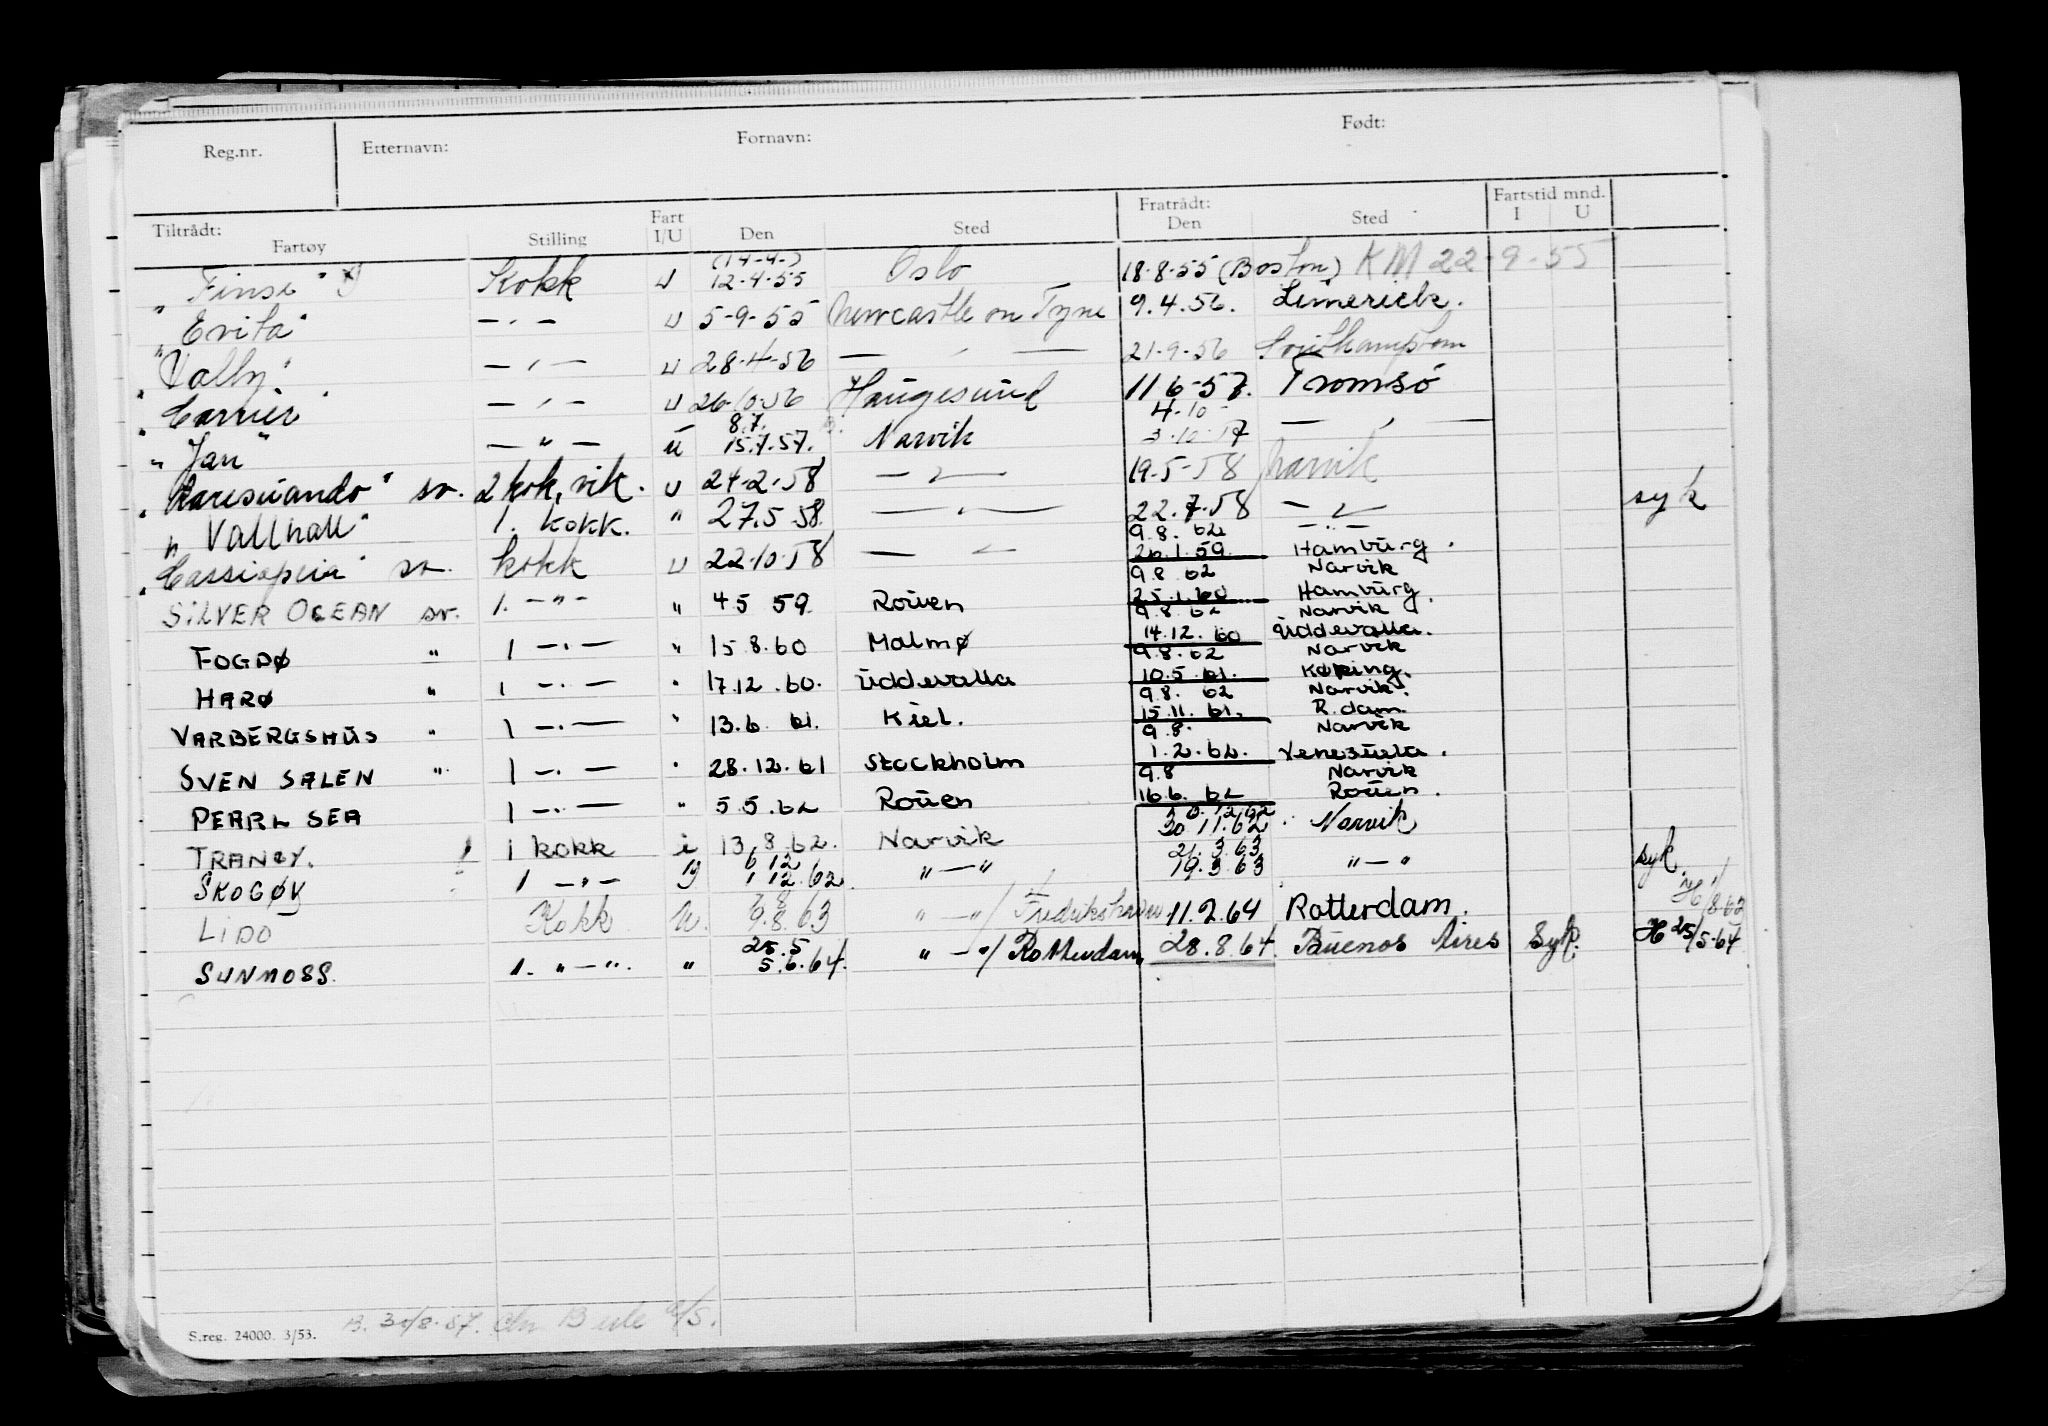 Reg.nr. Etternavn: Fornavn: Født:
Tiltrådt: Fartøy Stilling Fart I/U Den Sted Fratrådt: Den Sted Fartstid mnd. I U
"Finse" Kokk u (14-4-) 12-4-55 Oslo 18-8-55 (Boston) KM 22-9-55
"Evita" — " — u 5-9-55 Newcastle on Tyne 9.4.56. Limerick.
"Vally" — " — u 28-4-56 — " — 21-9-56 Southampton
"Carrier" — " — u 26-10-56 Haugesund 11 6-57. Tromsø
"Jan" — " — u 8.7. 15.7.57. Narvik 4-10- 3-10-57 — " —
"Karesuando" sv. 2 kok, vik. u 24-2-58 — " — 19-5-58 Narvik
"Vallhall" 1. kokk. " 27.5 58. — " — 22.7.58 — " — syk
"Cassiopeia" sv. kokk u 22-10-58 — " — 9.8. 62 — " — 26.1.59. Hamburg.
SILVER OCEAN sv. 1. — " — " 4.5 59. Rouen 9.8 62 Narvik 25.1.60 Hamburg.
FOGDØ " 1 — " — " 15.8.60 Malmø 9.8 62 Narvik 14.12.60 Uddevalla.
HARØ " 1 — " — " 17.12.60. Uddevalla 9.8.62 Narvik 10.5.61. Køping.
VARBERGSHUS " 1 — " — " 13.6. 61. Kiel. 9.8. 62 Narvik. 15.11.61. R.dam.
SVEN SALEN " 1 — " — " 28.12.61 Stockholm 9.8. Narvik 1.2.62. Venezuela.
PEARL SEA 1 — " — " 5.5.62 Rouen 9.8 Narvik 16.6.62 Rouen.
TRANØY. 1 kokk i 13.8.62. Narvik 12.62 30 11.62 Narvik
SKOGØY 1 — " — 6 12 1 12.62. " — " 21.3.63 19.3.63 " — " syk.
LIDO Kokk u. 7 8 9.8.63 " — " / Fredrikshavn 11.2.64 Rotterdam. H /8-62
SUNMOSS. 1. " — ". " 25.5 5.6.64. " — " / Rotterdam 28.8.64. Buenos Aires Syk. H 25/5-64
S.reg. 24000. 3/53. B. 30/8-57.